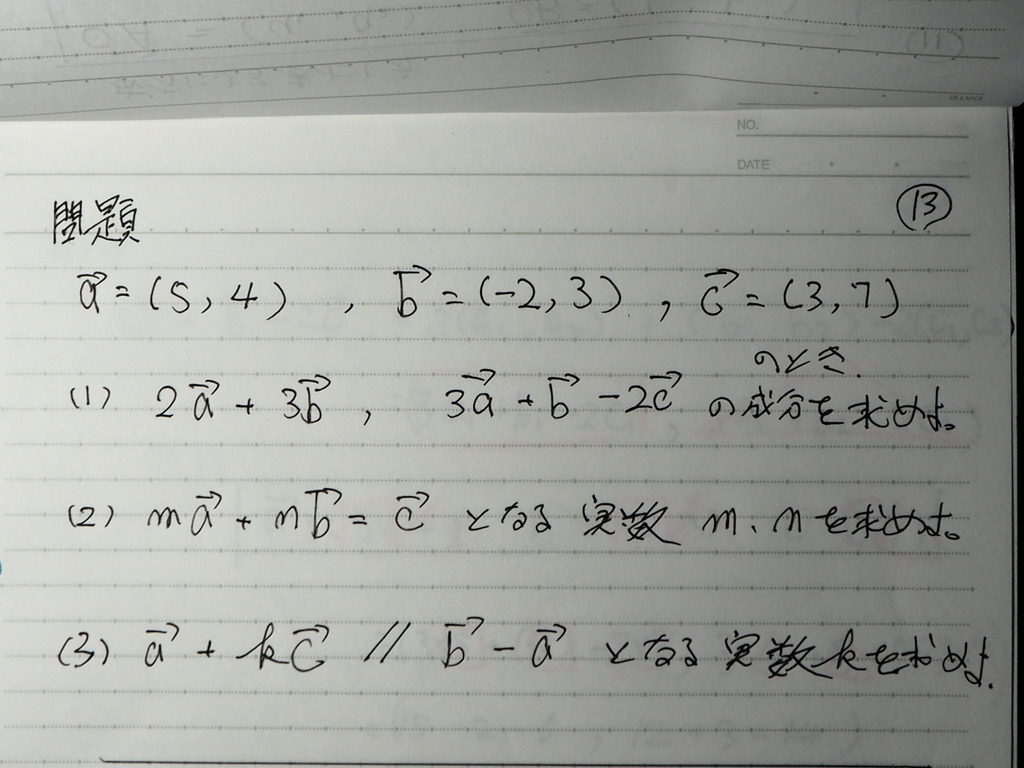 NO.
DATE
問題 ⑬
a⃗ = (5, 4) , b⃗ = (-2, 3) , c⃗ = (3, 7)
のとき.
(1) 2a⃗ + 3b⃗ , 3a⃗ + b⃗ - 2c⃗ の成分を求めよ。
(2) ma⃗ + nb⃗ = c⃗ となる 実数 m、nを求めよ。
(3) a⃗ + kc⃗ // b⃗ - a⃗ となる 実数kを求めよ.